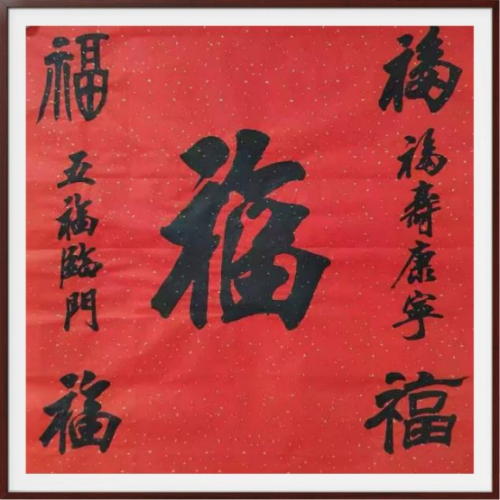 福
福寿康宁
福
福
福
五福臨門
福